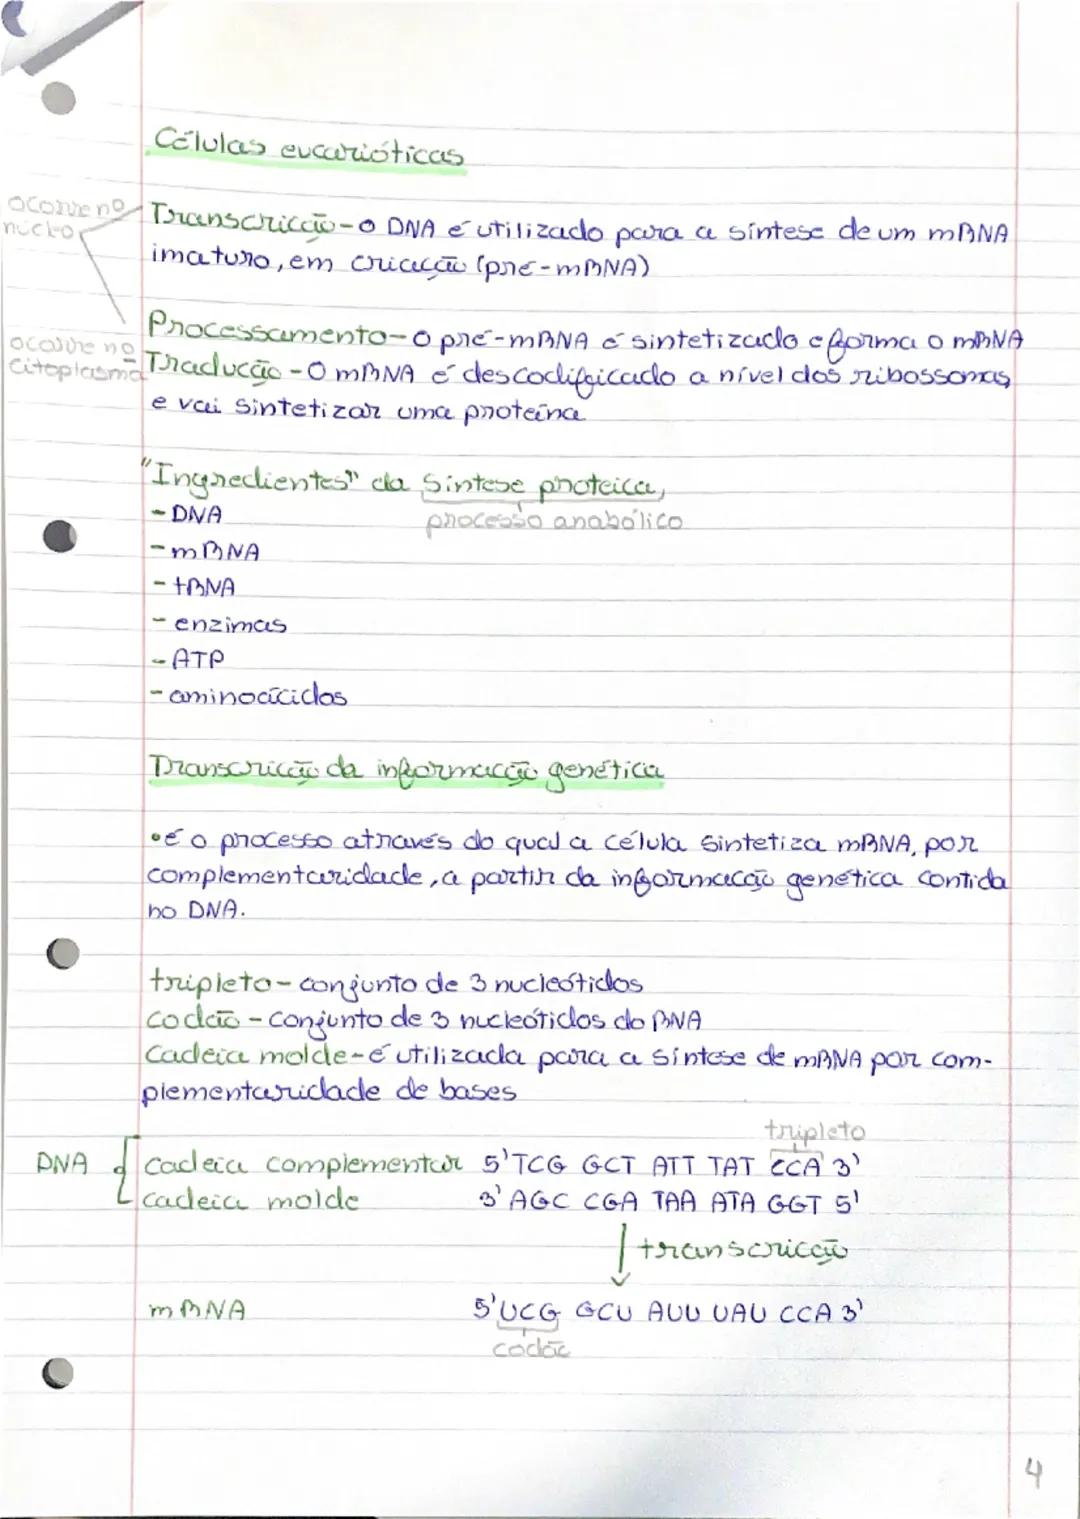 Células eucarióticas
ocorre no
núcleo
Transcricção - o DNA é utilizado para a síntese de um mRNA
imaturo, em criacção (pré-mRNA)
Processamento - o pré-mRNA é sintetizado e forma o mRNA
ocorre no
citoplasma
Traducção - O mRNA é descodificado a nível dos ribossomas
e vai sintetizar uma proteína
"Ingredientes" da Síntese proteica,
processo anabólico
- DNA
- mRNA
- tRNA
- enzimas
- ATP
- aminoácidos
Transcricão da informacção genética
• é o processo através do qual a célula sintetiza mRNA, por
complementaridade, a partir da informacção genética contida
no DNA.
tripleto - conjunto de 3 nucleótidos
codão - conjunto de 3 nucleótidos do RNA
Cadeia molde - é utilizada para a síntese de mRNA por com-
plementaridade de bases
tripleto
DNA
cadeia complementar 5' TCG GCT ATT TAT CCA 3'
cadeia molde 3' AGC CGA TAA ATA GGT 5'
transcricção
mRNA 5' UCG GCU AUU UAU CCA 3'
codão
4